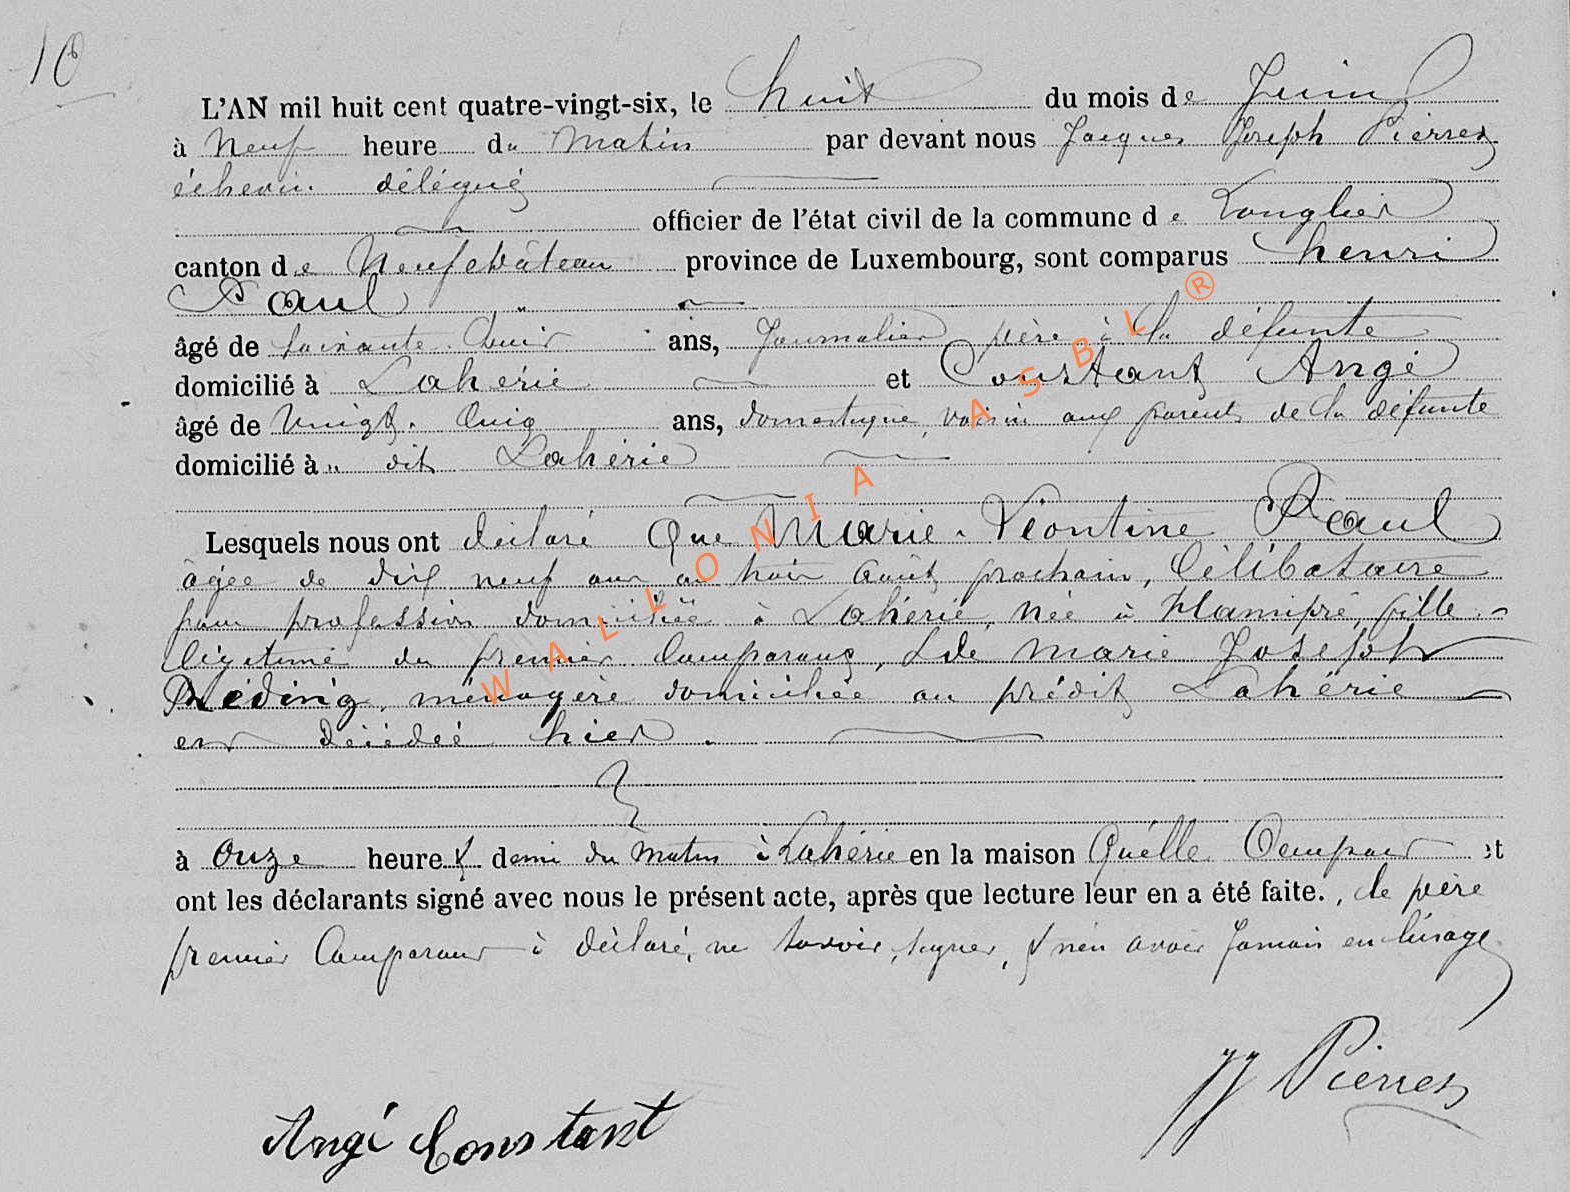 10
L'AN mil huit cent quatre-vingt-six, le huit du mois de Juin
à Neuf heure du Matin par devant nous Jacques Joseph Pierret
échevin délégué
officier de l'état civil de la commune de Longlier
canton de Neufchâteau province de Luxembourg, sont comparus henri
Paul
âgé de ans, Journalier père à la défunte
domicilié à Lahérie et Constant Angé
âgé de Vingt. Cinq ans, domestique, voisin aux parents de la défunte
domicilié à dit Lahérie
Lesquels nous ont déclaré que Marie. Léontine Paul
âgée de dix neuf ans au huit août prochain, Célibataire
profession domiciliée à Lahérie, née à Namipré, fille
légitime du premier Comparant, & de Marie Joseph
Réding, ménagère domiciliée au prédit Lahérie
est décédée hier.
à onze heure & demi du Matin à Lahérie en la maison Qu'elle Occupait et
ont les déclarants signé avec nous le présent acte, après que lecture leur en a été faite., le père
premier Comparant à déclaré, ne savoir, signer, & n'en avoir Jamais eu l'usage.
JJ Pierret
Angé Constant
WALLONIA ASBL ®